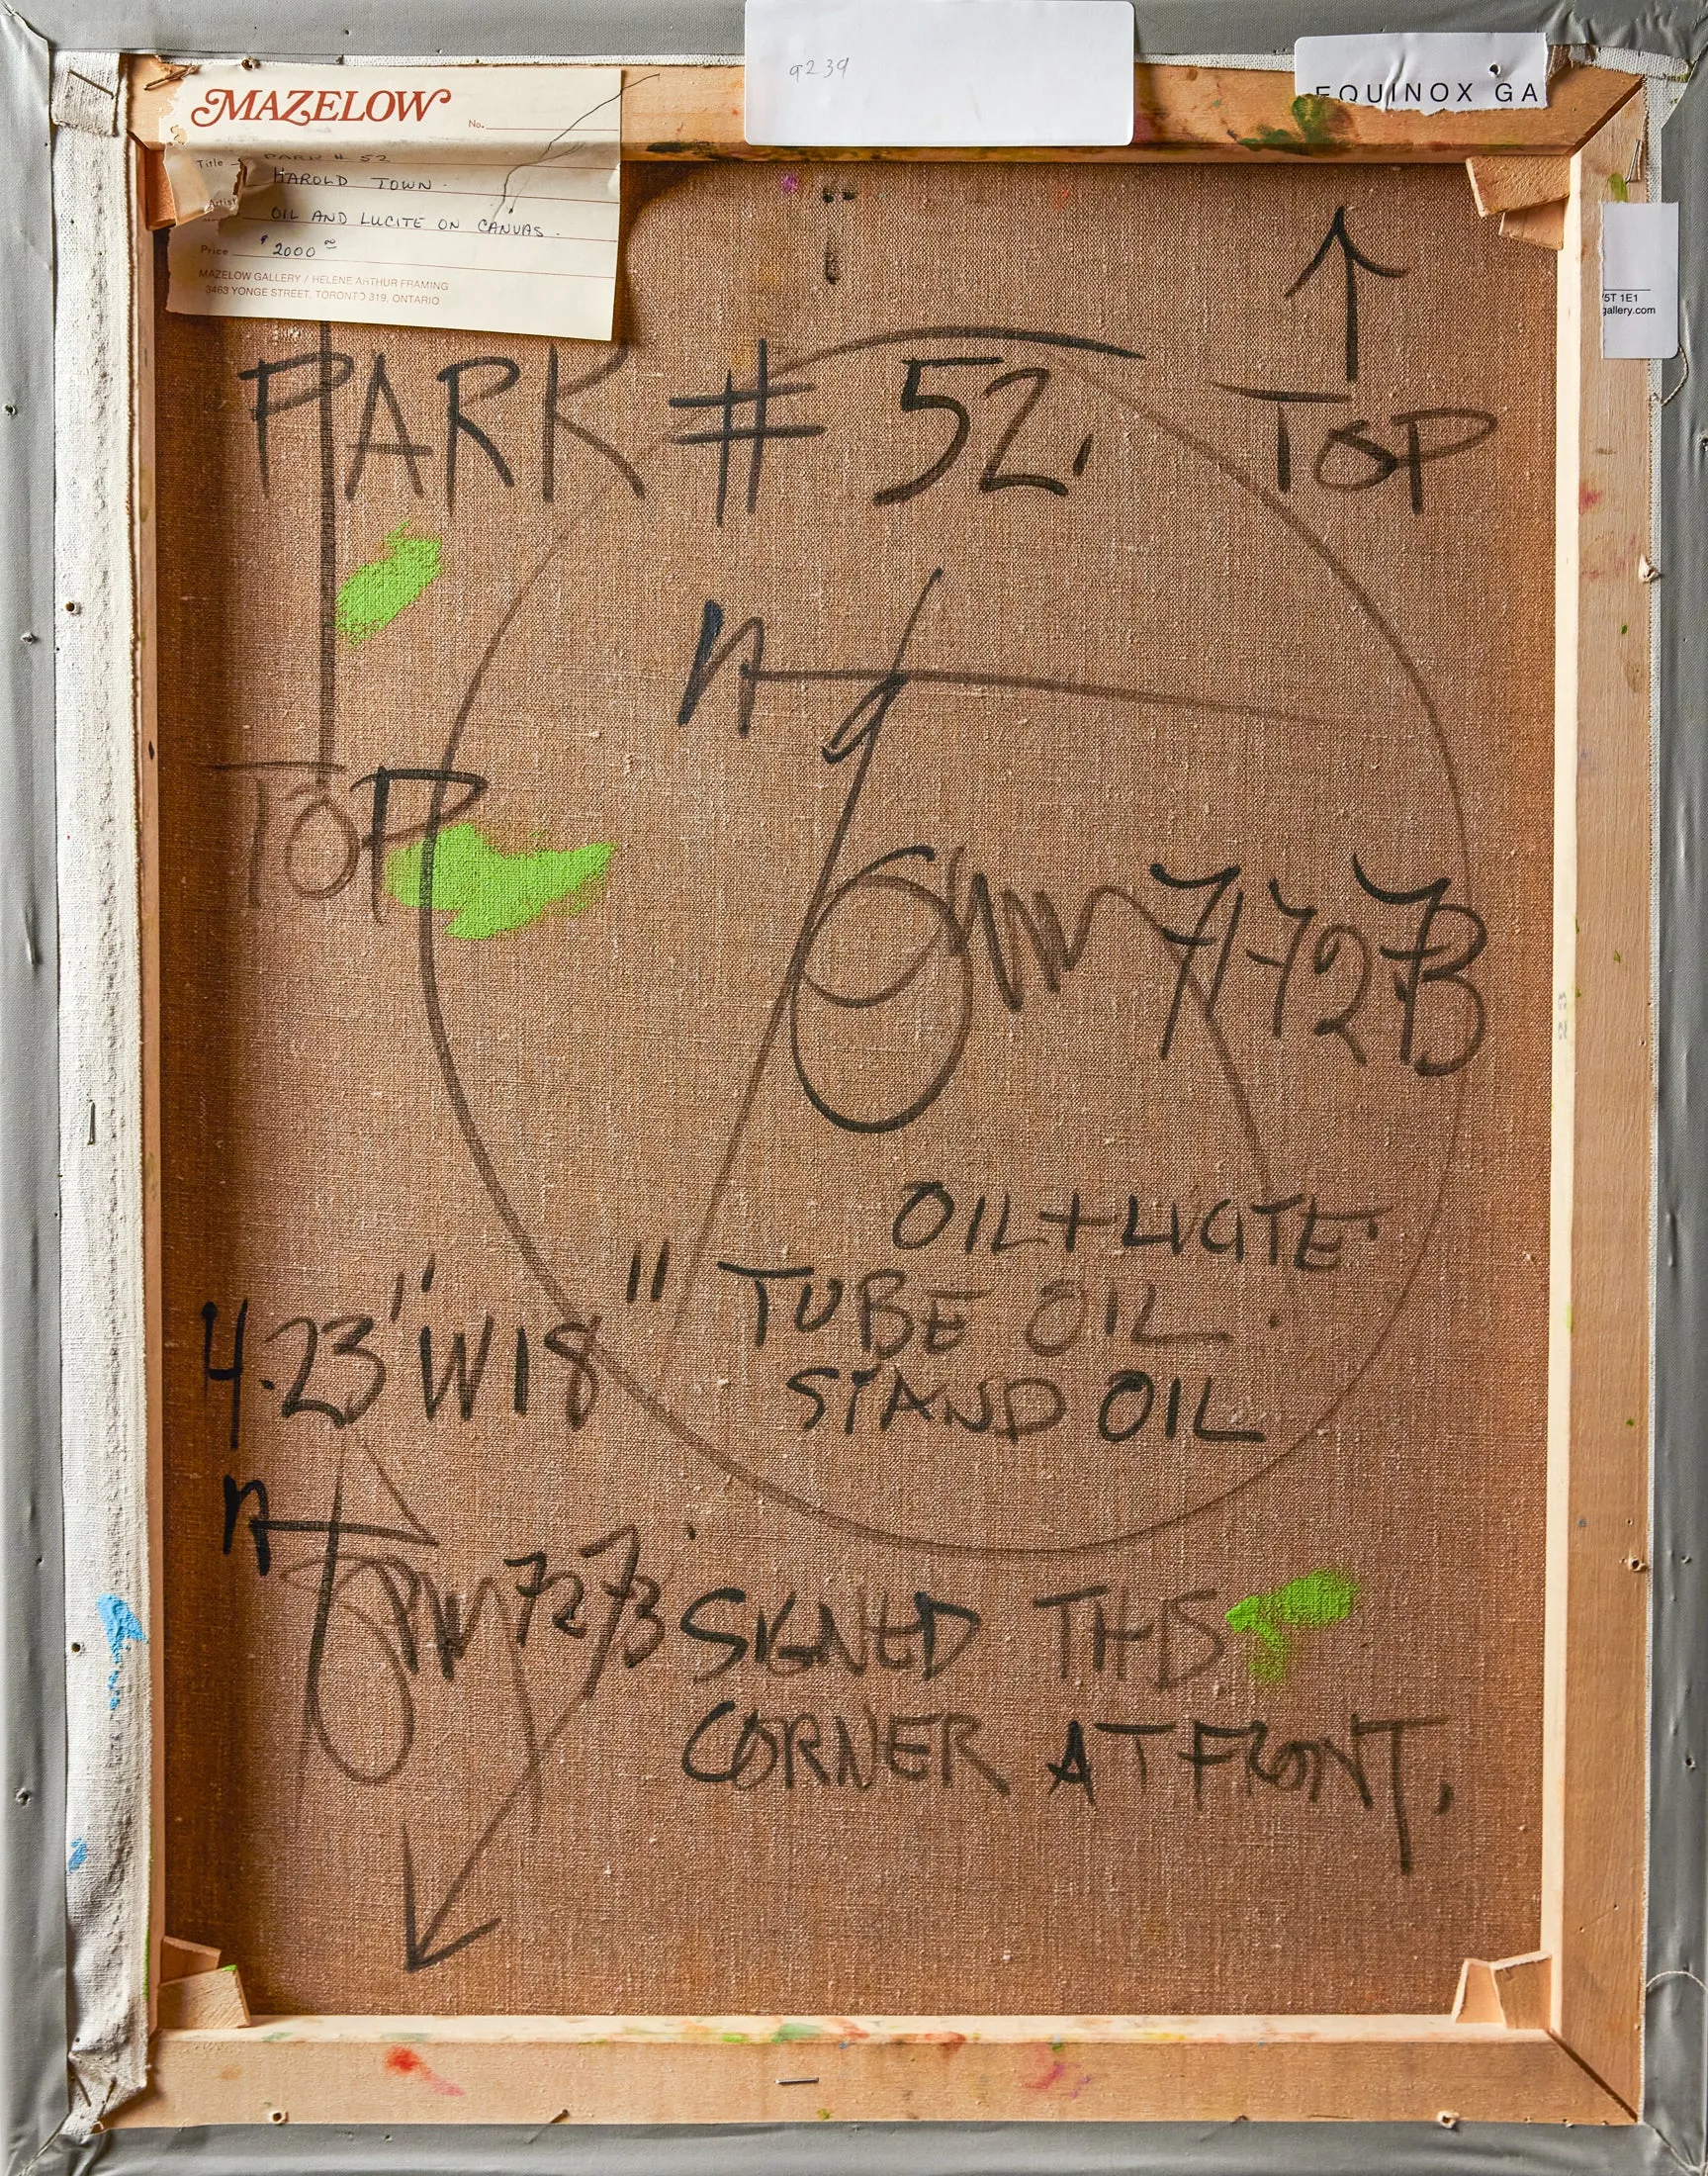 MAZELOW
No.
Title PARK # 52
Artist HAROLD TOWN.
OIL AND LUCITE ON CANVAS.
Price $2000 00
MAZELOW GALLERY / HELENE ARTHUR FRAMING
3463 YONGE STREET, TORONTO 319, ONTARIO
9239
EQUINOX GA
5T 1E1
gallery.com
PARK # 52.
TOP
TOP
71-72 73
OIL + LUCITE
TUBE OIL.
STAND OIL
H.23" W18"
72 73
SIGNED THIS
CORNER AT FRONT.